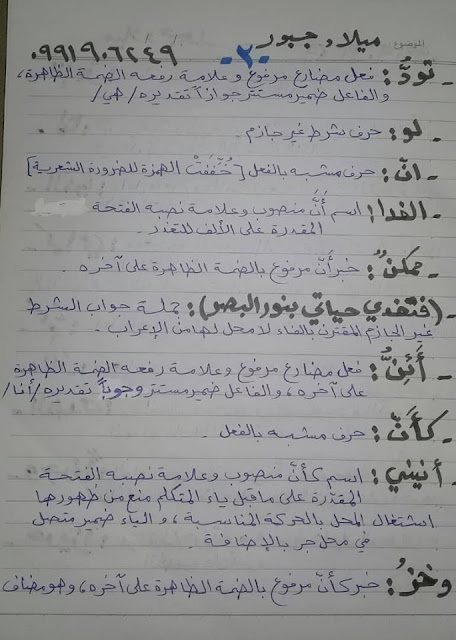 الموضوع
ميلاد جبور -٣٠- ٠٩٩١٩٠٦٢٤٩
- تودُّ: فعل مضارع مرفوع وعلامة رفعه الضمة الظاهرة،
والفاعل ضمير مستتر جوازاً تقديره /هي/
- لو: حرف شرط غير جازم.
- انّ: حرف مشبه بالفعل [خُفِّفَتْ الهمزة للضرورة الشعرية]
- الفدا: اسم أَنَّ منصوب وعلامة نصبه الفتحة
المقدرة على الألف للتعذر.
- ممكنٌ: خبر أنّ مرفوع بالضمة الظاهرة على آخره.
- (فتفدي حياتي بنور البصر): جملة جواب الشرط
غير الجازم المقترن بالفاء لا محل لها من الإعراب.
- أَئِنُّ: فعل مضارع مرفوع وعلامة رفعه الضمة الظاهرة
على آخره، والفاعل ضمير مستتر وجوباً تقديره /أنا/
- كأنّ: حرف مشبه بالفعل.
- أنيني: اسم كأنّ منصوب وعلامة نصبه الفتحة
المقدّرة على ماقبل ياء المتكلم منع من ظهورها
اشتغال المحل بالحركة المناسبة، والياء ضمير متصل
في محل جر بالإضافة.
- وخزُ: خبر كأنّ مرفوع بالضمة الظاهرة على آخره، وهو مضاف